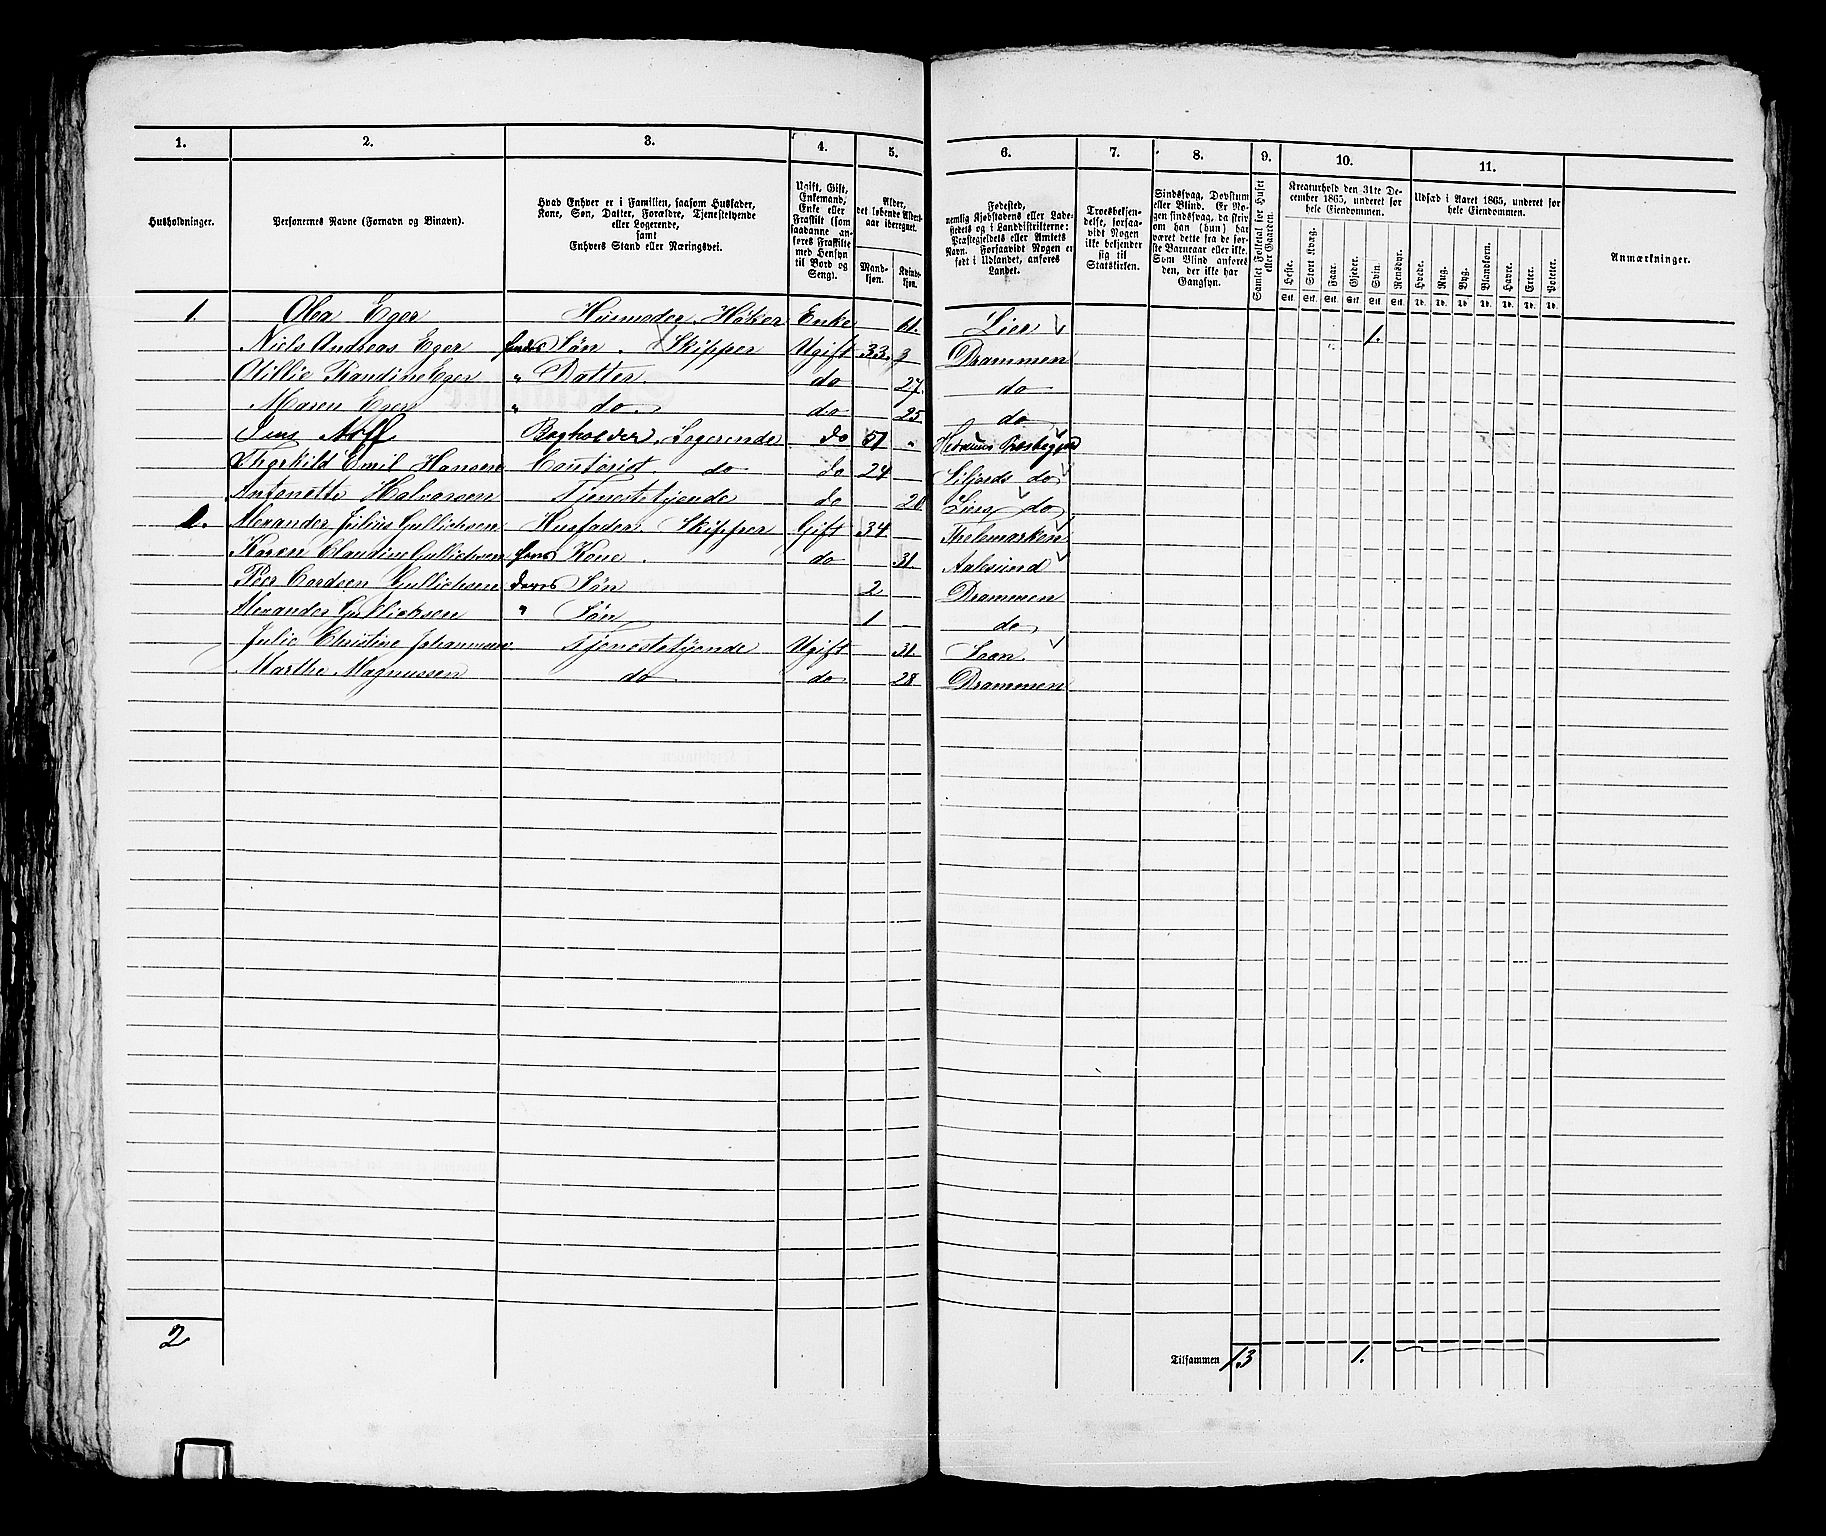 1. 2. 3. 4. 5. 6. 7. 8. 9. 10. 11.
Husholdninger.
Personernes Navne (Fornavn og Binavn).
Hvad Enhver er i Familien, saasom Husfader,
Kone, Søn, Datter, Forældre, Tjenestetyende
eller Logerende,
samt
Enhvers Stand eller Næringsvei.
Ugift, Gift,
Enkemand,
Enke eller
Fraskilt (som
saadanne an-
føres Fraskilte
med Hensyn
til Bord og
Seng).
Alder,
det løbende Alders-
aar iberegnet.
Mand-
kjøn.
Kvinde-
kjøn.
Fødested,
nemlig Kjøbstadens eller Lade-
stedets og i Landdistrikterne:
Præstegjeldets eller Amtets
Navn. Forsaavidt Nogen er
født i Udlandet, anføres
Landet.
Troesbekjen-
delse, forsaa-
vidt Nogen
ikke bekjender
sig til
Statskirken.
Sindssvag, Døvstum
eller Blind. Er No-
gen sindssvag, da skriv
om han (hun) har
været dette fra de før-
ste Barneaar eller ikke.
Som Blind anføres
den, der ikke har
Gangsyn.
Samlet Folketal for Huset
eller Gaarden.
Kreaturhold den 31te De-
cember 1865, underet for
hele Eiendommen.
Heste. Stort Kvæg. Faar. Gjeder. Svin. Rensdyr.
Stk. Stk. Stk. Stk. Stk. Stk.
Udsæd i Aaret 1865, underet for
hele Eiendommen.
Hvede. Rug. Byg. Blandkorn. Havre. Erter. Poteter.
Td. Td. Td. Td. Td. Td. Td.
Anmærkninger.
1. Olea Eger Husmoder Høker Enke 61. Lier 1.
Niels Andreas Eger Søn. Skipper Ugift 33. Drammen
Randine Eger " Datter. do 27 do
Maren Eger " do. do 25 do
Jens Bogholder, Logerende do 51 "
Emil Hansen Contorist. do do 24 do
Antonette Halvorsen Tjenestetyende do do
1. Alexander Julius Gullichsen Husfader. Skipper Gift 34 Thelemarken
Karen Claudine Gullichsen hans Kone. do 31 Aalesund
Peer Cordsen Gullichsen deres Søn 2 Drammen
Alexander Gullichsen " Søn 1 do
Julie Christine Johannesen Tjenestetyende Ugift 31. Saan
Marthe Magnussen do do 28 Drammen
2
Tilsammen 13 1.